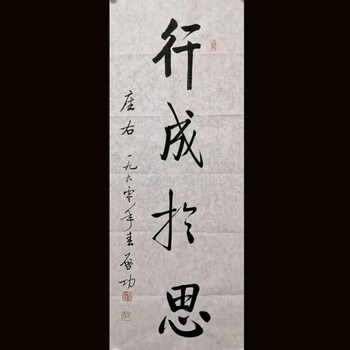 行成於思
座右
一九六零年春 啓功